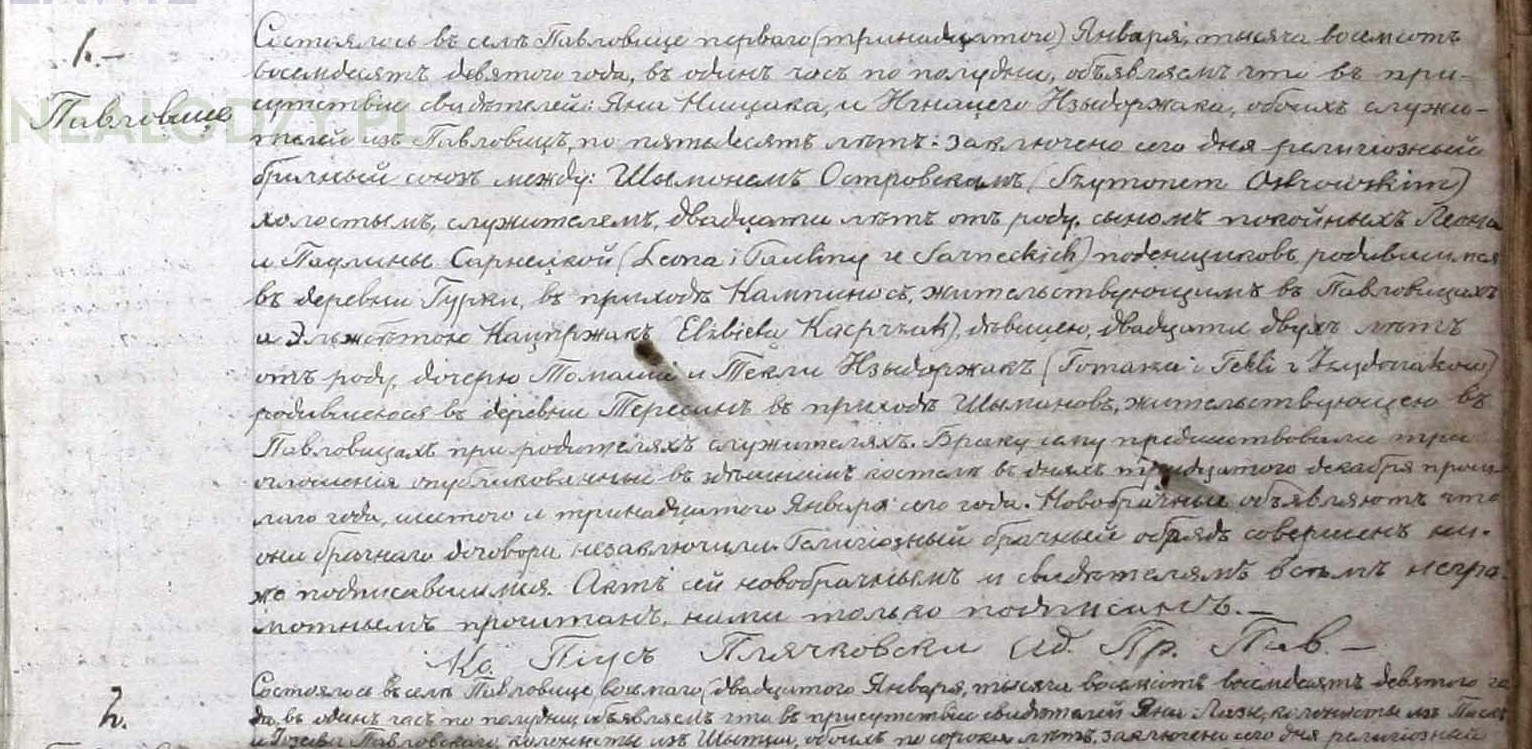 NEALODZY.PL
1.–
Павловице
Состоялось въ селѣ Павловице перваго (тринадцатого) Января, тысяча восемсотъ
восемдесятъ девятого года, въ одинъ часъ по полудни, объявляемъ что въ при-
сутствіи свидѣтелей: Яна Ницака, и Игнацего Изыдоржака, обоихъ служи-
телей изъ Павловицъ, по пятьдесятъ лѣтъ: заключено сего дня религіозный
брачный союзъ между: Шымонемъ Островскимъ (Szymonem Ostrowskim)
холостымъ, служителемъ, двадцати лѣтъ отъ роду, сыномъ покойныхъ Леона
и Паулины Сарнецкой (Leona i Pauliny z Sarneckich) поденщиковъ родившимся
въ деревни Гурки, въ приходѣ Кампиносъ, жительствующимъ въ Павловицахъ
и Эльжбѣтою Кацпржакъ (Elżbieta Kacprzak), дѣвицею, двадцати двухъ лѣтъ
отъ роду, дочерю Томаша и Текли Изыдоржакъ (Tomasza i Tekli z Izydorzaków)
родившеюся въ деревни Тересинъ въ приходѣ Шымановъ, жительствующею въ
Павловицахъ при родителяхъ служителяхъ. Браку сему предшествовали три
оглашения опубликованные въ здѣшнемъ костелѣ въ дняхъ тридцатого декабря прош-
лаго года, шестого и тринадцатого Января сего года. Новобрачные объявляютъ что
они брачнаго договора незаключили. Религіозный брачный обрядъ совершенъ ни-
же подписавшимся. Актъ сей новобрачнымъ и свидѣтелямъ всѣмъ негра-
мотнымъ прочитанъ, нами только подписанъ.–
Кс. Піусъ Плячковски Ад. Пр. Пав.–
2.
Состоялось въ селѣ Павловице, восьмаго (двадцатого) Января, тысяча восемсотъ восемдесятъ девятого го-
да, въ одинъ часъ по полудни, объявляемъ что въ присутствіи свидѣтелей Яна Лазы, колониста изъ
и Іозефа Павловского, колониста изъ обоихъ по сорокъ лѣтъ, заключено сего дня религіозный